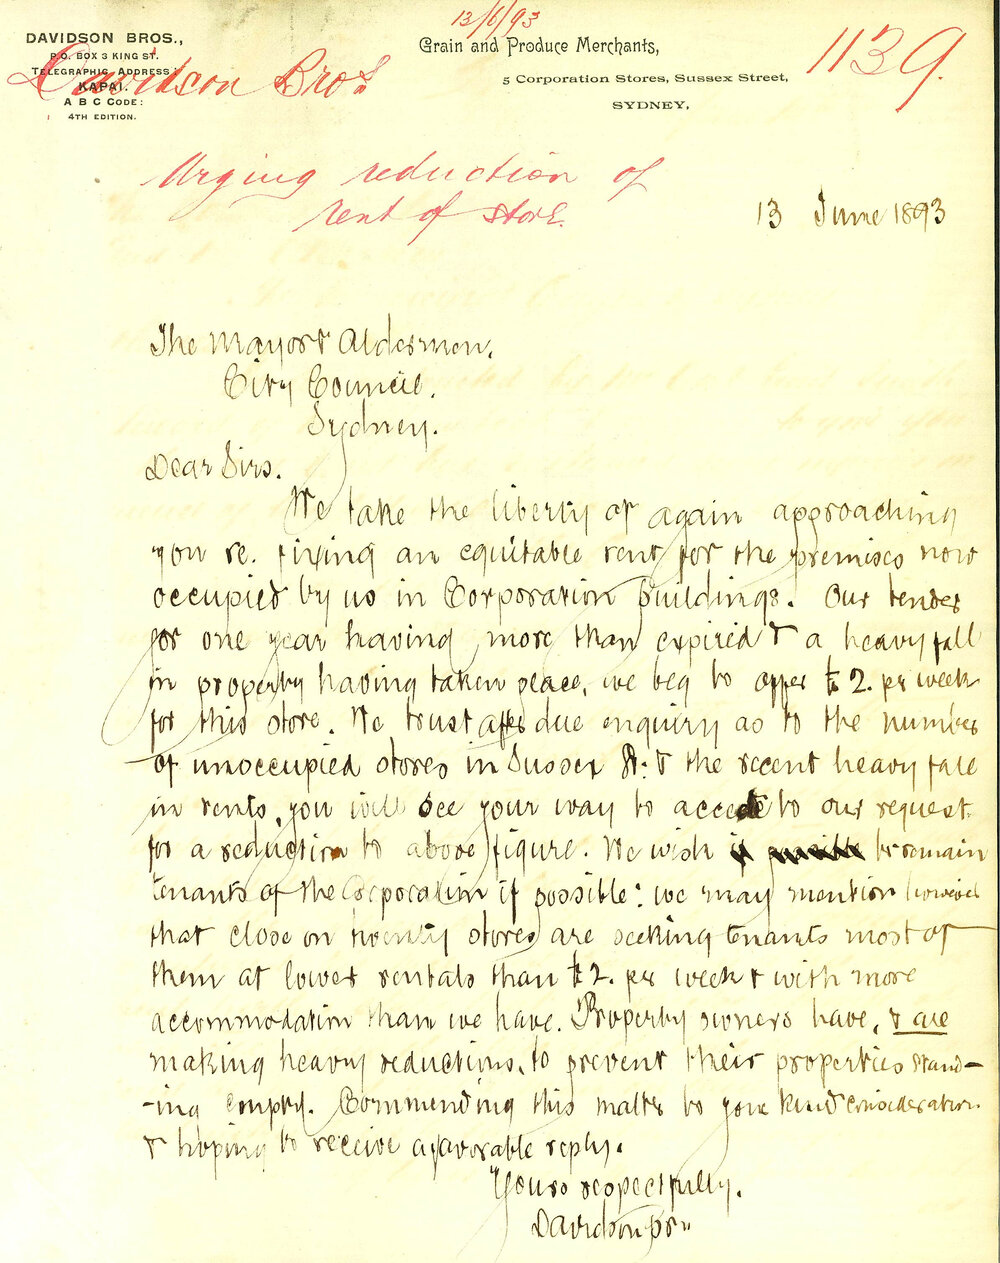 13/6/93
DAVIDSON BROS.,
P.O. BOX 3 KING ST.
TELEGRAPHIC ADDRESS:
KAPAI.
A B C CODE:
4TH EDITION.
Grain and Produce Merchants,
5 Corporation Stores, Sussex Street,
SYDNEY,
1139.
Davidson Bros
Urging reduction of
rent of store.
13 June 1893
The Mayor & Aldermen.
City Council.
Sydney.
Dear Sirs.
We take the liberty of again approaching
you re. fixing an equitable rent for the premises now
occupied by us in Corporation buildings. Our tender
for one year having more than expired & a heavy fall
in property having taken place, we beg to offer £2. per week
for this store. We trust after due enquiry as to the number
of unoccupied stores in Sussex St. & the recent heavy fall
in rents, you will see your way to accede to our request
for a reduction to above figure. We wish to remain
tenants of the Corporation if possible: we may mention however
that close on twenty stores are seeking tenants most of
them at lower rentals than £2. per week & with more
accommodation than we have. Property owners have, & are
making heavy reductions, to prevent their properties stand-
-ing empty. Commending this matter to your kind consideration
& hoping to receive a favorable reply.
Yours respectfully.
Davidson Bros